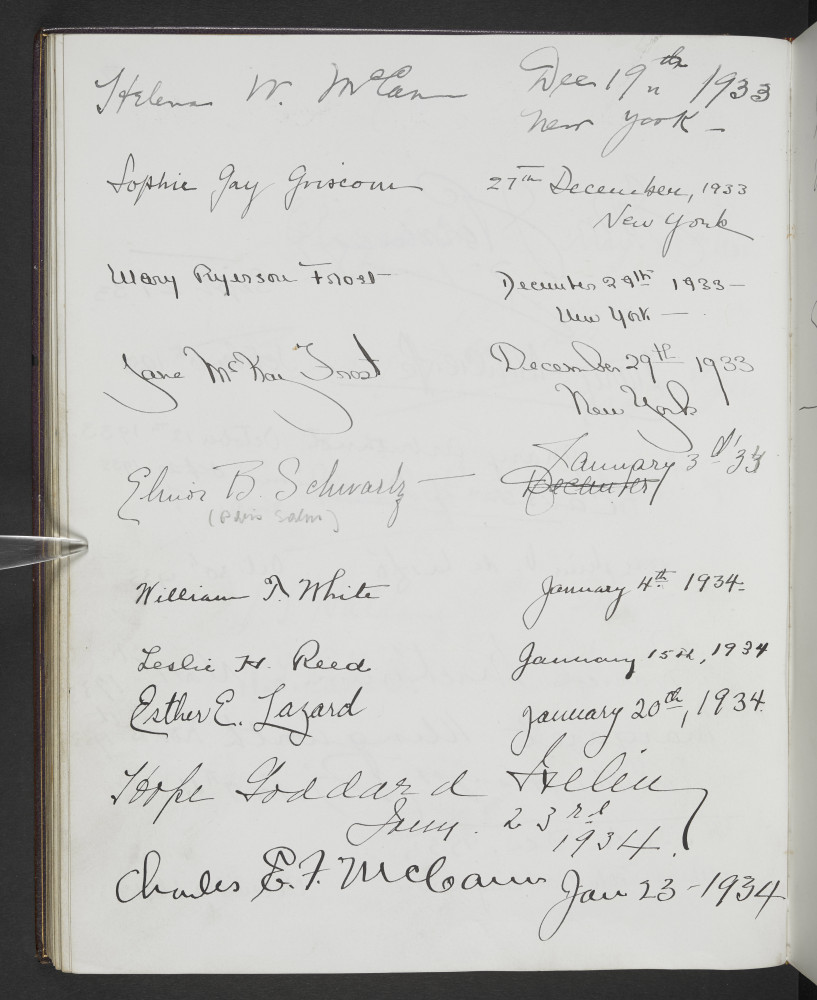 Helena W. McCann Dec 19th 1933
New York -
Sophie Gay Griscom 27th December, 1933
New York
Mary Ryerson Frost December 29th 1933 -
New York -
Jane McKay Frost December 29th 1933
New York
Elinor B. Schwartz - January 3d '34
December
William T. White January 4th 1934.
Leslie H. Reed January 15th, 1934
Esther E. Lazard January 20th, 1934.
Hope Goddard Iselin
Jany. 23rd
1934.
Charles E. F. McCann Jan 23 - 1934